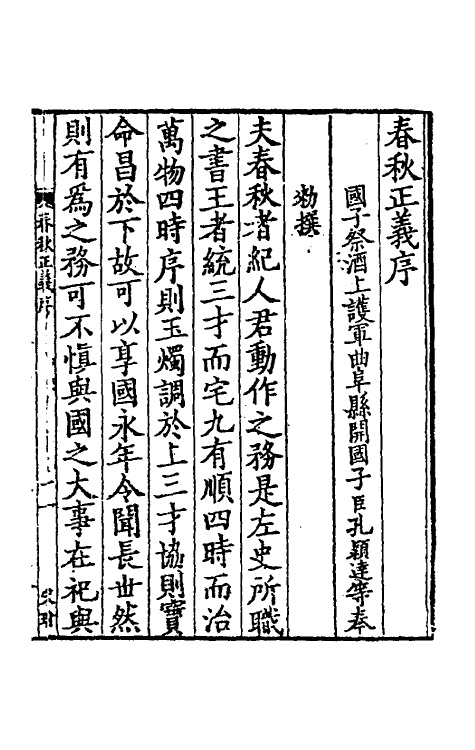 春秋正義序
國子祭酒上護軍曲阜縣開國子臣孔穎達等奉
勑撰
夫春秋者紀人君動作之務是左史所職
之書王者統三才而宅九有順四時而治
萬物四時序則玉燭調於上三才協則寶
命昌於下故可以享國永年令聞長世然
則有爲之務可不慎與國之大事在祀與
春秋正義序
一